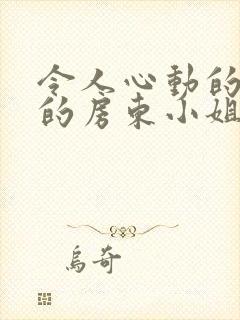 令人心動的
的房东小姐
烏奇